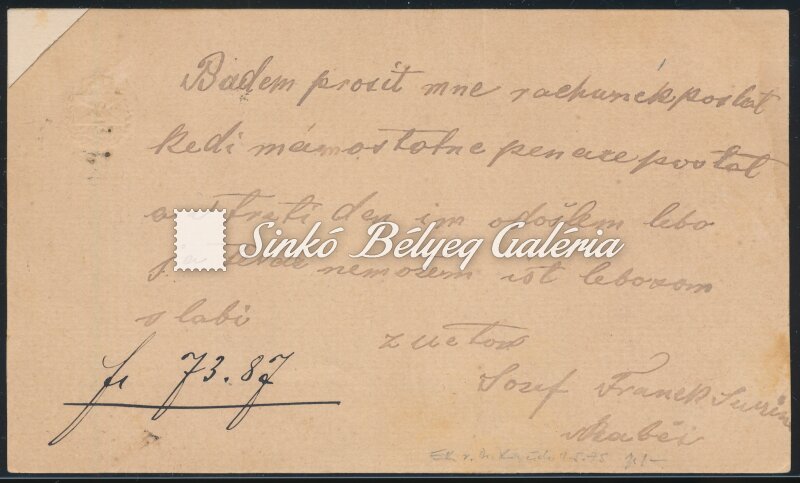 Budem prosit mne rachunek poslat
kedi mám ostatne penaze poslat
a treti den im odošlem lebo
ja nemozem ist lebo som
slabi
z uctov
Jozef Franek
fr 73.87
Sinkó Bélyeg Galéria